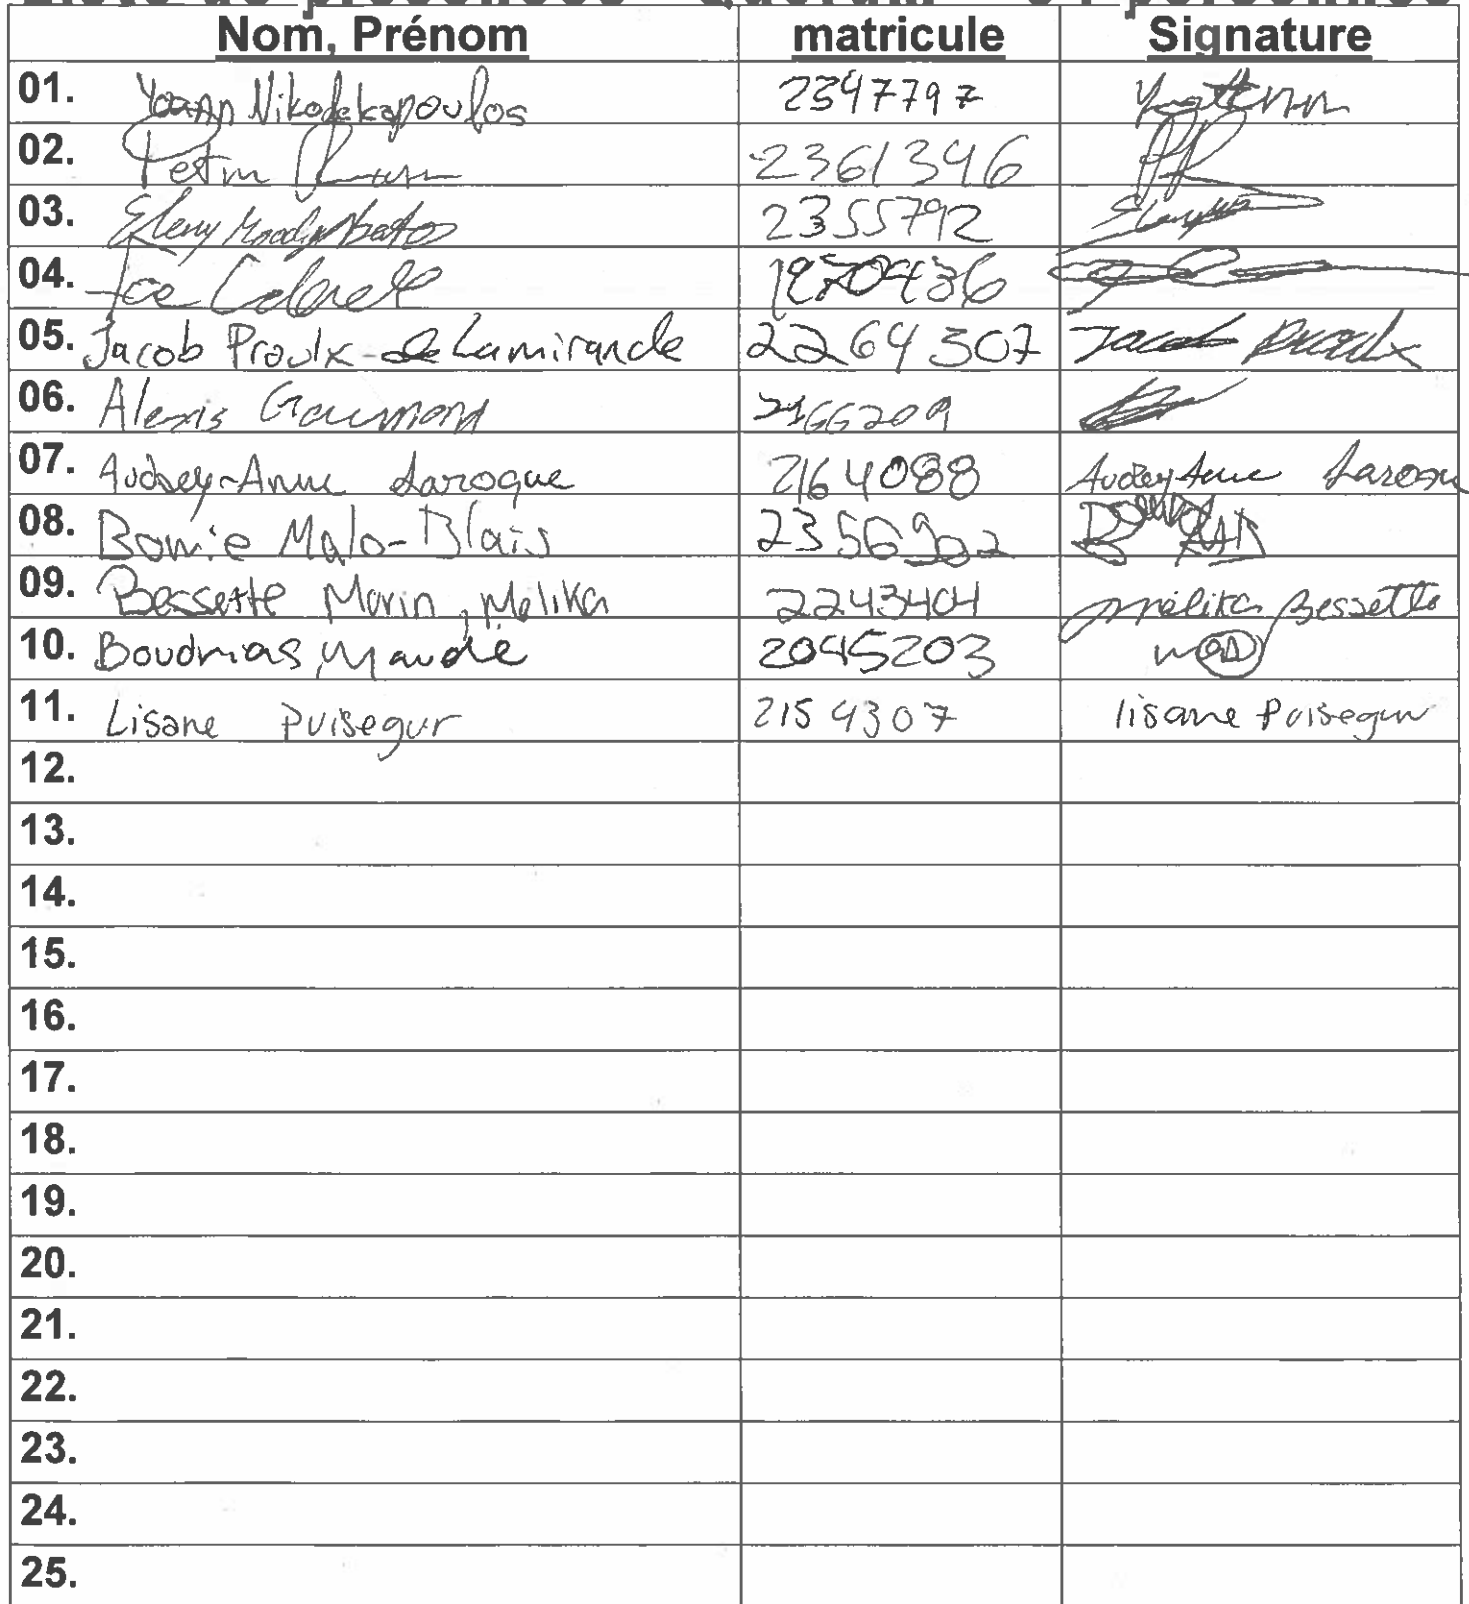 Liste de présences - Quorum
Nom, Prénom matricule Signature
01. Yoann Nikodekapoulos 2347797
02. 2361346
03. Eleny 2355792
04. Joe
05. Jacob Proulx-deLamirande 2264307 Jacob Proulx
06. Alexis Gaumond 2166209
07. Audrey-Anne Laroque 2164088 Audrey Anne
08. Bowie Malo-Blais 2356902
09. Bessette Morin, Melika 2243404 Mélika Bessette
10. Boudrias, Maude 2045203
11. Lisane Puisegur 2154307 lisane Puisegur
12.
13.
14.
15.
16.
17.
18.
19.
20.
21.
22.
23.
24.
25.